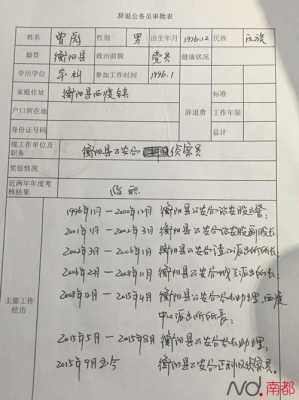 辞退公务员审批表
姓名 曾 性别 男 出生年月 1976.12 民族 汉族
籍贯 衡阳县 政治面貌 党员 健康状况
学历学位 本科 参加工作时间 1996.1
家庭住址 衡阳县西渡镇
户口所在地 辞退费 工作年限
身份证号码 总计
现工作单位及职务 衡阳县公安局 侦察员
奖惩情况
近两年年度考核结果 称职
主要工作经历
1996年11月－2000年12月 衡阳县公安局治安股民警;
2001年1月－2002年3月 衡阳县公安局治安股副股长
2002年3月－2006年1月 衡阳县公安局 派出所所长;
2006年2月－2008年11月 衡阳县公安局 派出所所长;
2008年12月－2015年4月 衡阳县公安局局长助理,西渡
中心派出所所长;
2015年5月－2015年8月 衡阳县公安局局长助理;
2015年9月至今 衡阳县公安局正科级侦察员.
南都